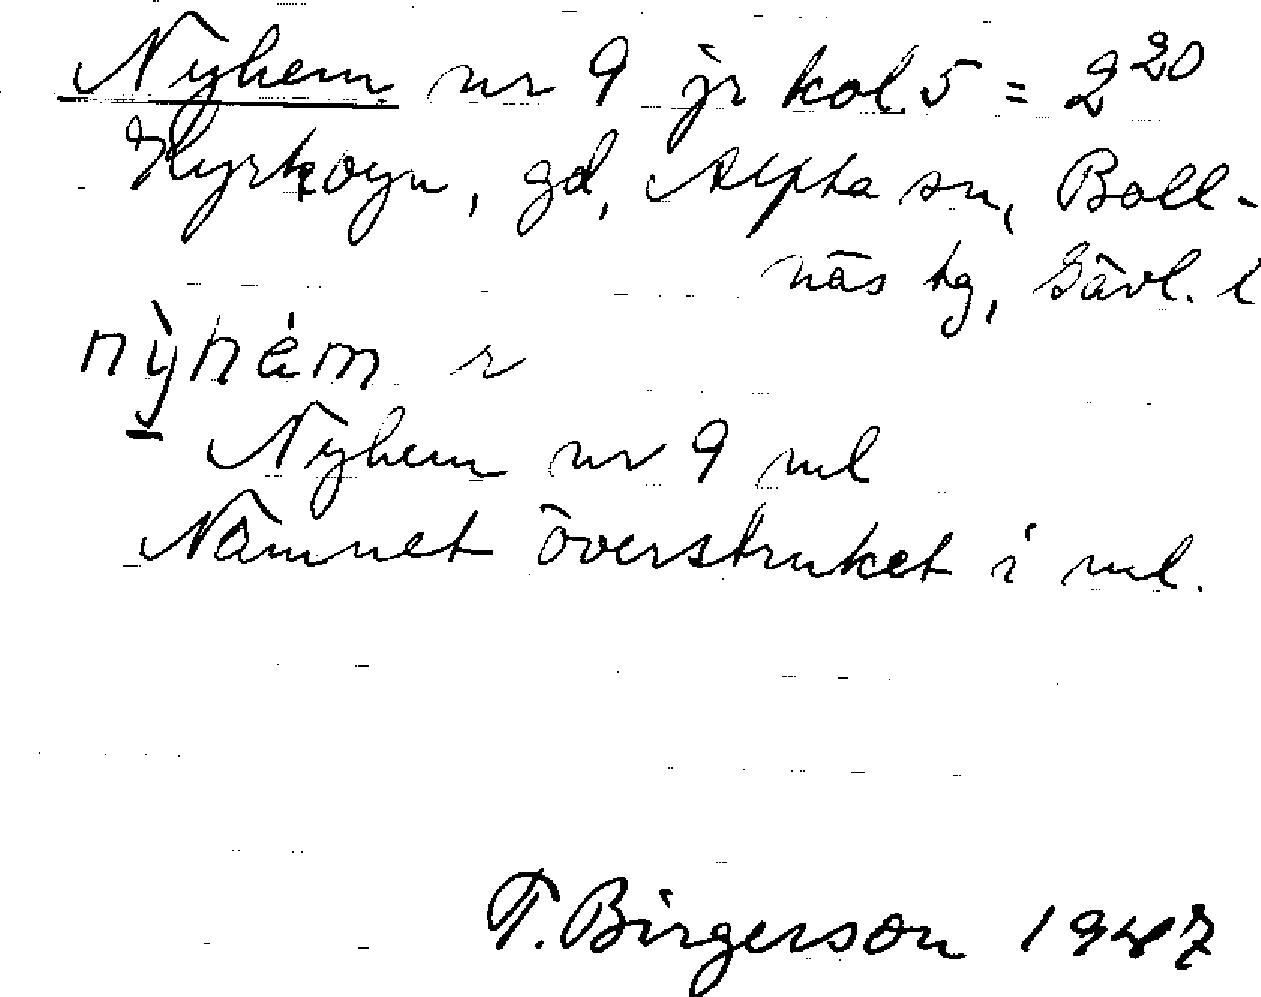 Nyhem nr 9 jr kol 5 = 2²⁰
Kyrkbyn, gd, Alfta sn, Boll-
näs tg, Gävl. l
nỳhém r
Nyhem nr 9 ml
Namnet överstruket i ml.
T. Birgerson 1947